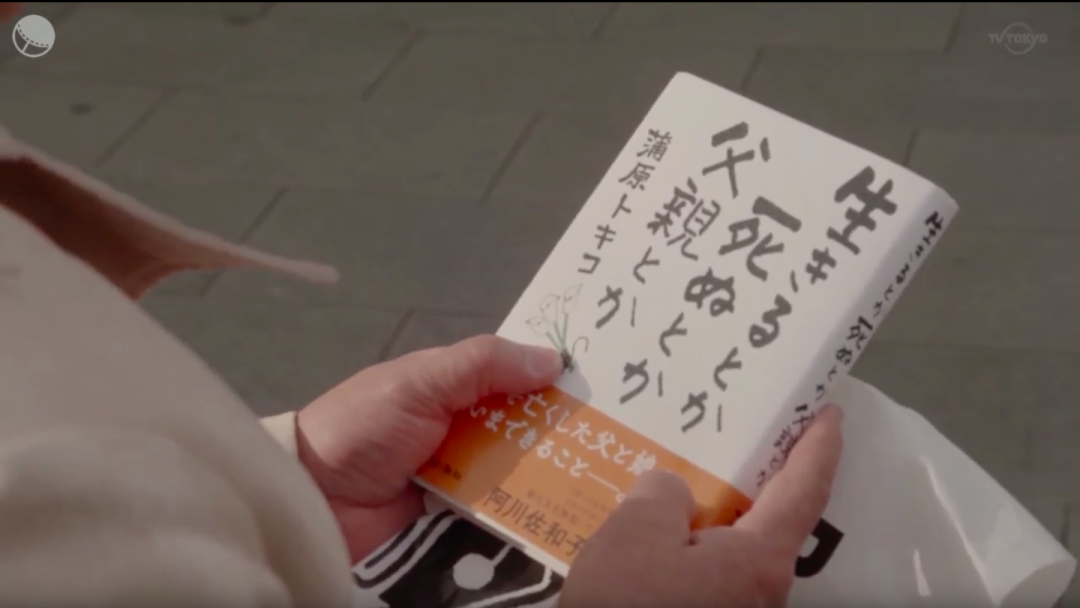 TV TOKYO
生きるとか
死ぬとか
父親とか
蒲原トキコ
生きるとか 死ぬとか 父親とか
亡くした父と娘
いまできること――。
阿川佐和子